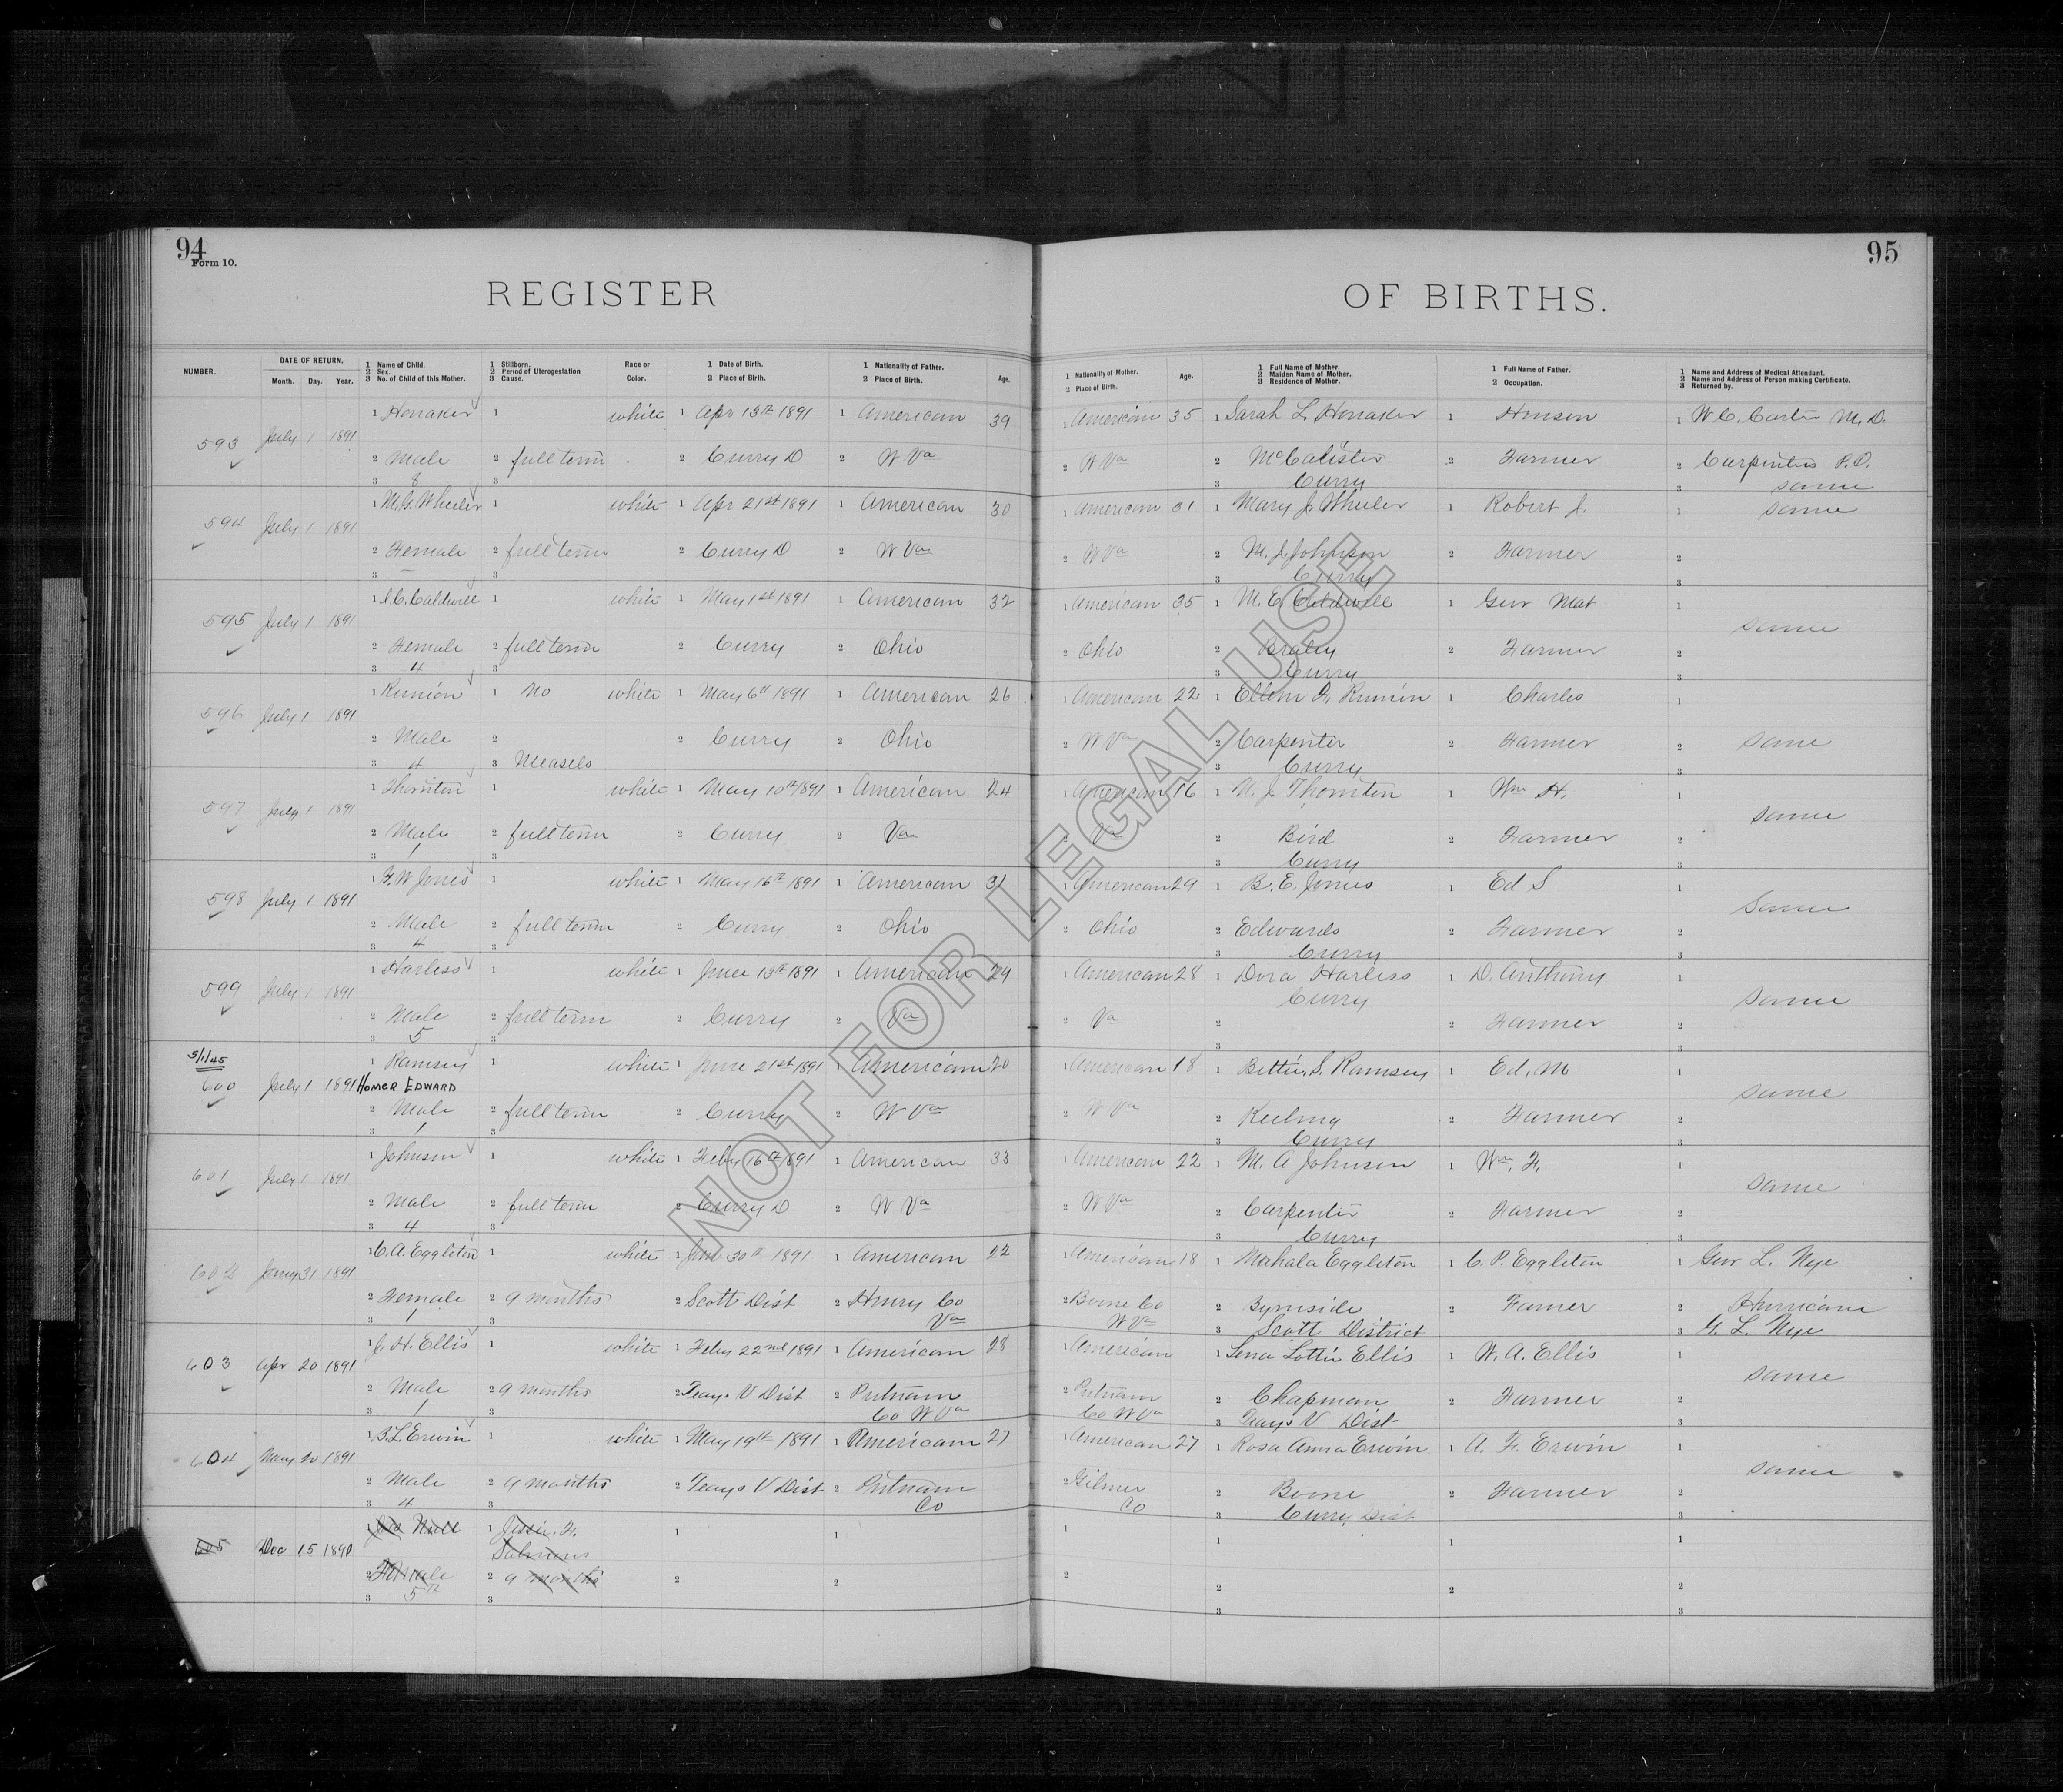 94
Form 10.
95
REGISTER OF BIRTHS.
NUMBER.
DATE OF RETURN.
Month. Day. Year.
1 Name of Child.
2 Sex.
3 No. of Child of this Mother.
1 Stillborn.
2 Period of Uterogestation
3 Cause.
Race or
Color.
1 Date of Birth.
2 Place of Birth.
1 Nationality of Father.
2 Place of Birth.
Age.
1 Nationality of Mother.
2 Place of Birth.
Age.
1 Full Name of Mother.
2 Maiden Name of Mother.
3 Residence of Mother.
1 Full Name of Father.
2 Occupation.
1 Name and Address of Medical Attendant.
2 Name and Address of Person making Certificate.
3 Returned by.
593 July 1 1891 1 Honaker 1 white 1 Apr 13th 1891 1 American 39 1 American 35 1 Sarah L. Honaker 1 Hinson 1 W. C. Carter M. D.
2 Male 2 full term 2 Curry D 2 W Va 2 W Va 2 McCalister 2 Farmer 2 Carpenters P.O.
3 8 3 3 Curry 3 same
594 July 1 1891 1 M. G. Wheeler 1 white 1 Apr 21st 1891 1 American 30 1 American 31 1 Mary J. Wheeler 1 Robert J. 1 same
2 Female 2 full term 2 Curry D 2 W Va 2 W Va 2 M. J. Johnson 2 Farmer 2
3 – 3 3 Curry 3
595 July 1 1891 1 C. Caldwell 1 white 1 May 1st 1891 1 American 32 1 American 35 1 M. E. Caldwell 1 Geo Mat 1
same
2 Female 2 full term 2 Curry 2 Ohio 2 Ohio 2 2 Farmer 2
3 4 3 3 Curry 3
596 July 1 1891 1 Runion 1 No white 1 May 6th 1891 1 American 26 1 American 22 1 Ellen F. Runion 1 Charles 1
2 Male 2 2 Curry 2 Ohio 2 W Va 2 Carpenter 2 Farmer 2 same
3 4 3 Measels 3 Curry 3
597 July 1 1891 1 Thornton 1 white 1 May 10th 1891 1 American 24 1 American 16 1 N. J. Thornton 1 Wm H. 1
same
2 Male 2 full term 2 Curry 2 Va 2 Va 2 Bird 2 Farmer 2
3 1 3 3 Curry 3
598 July 1 1891 1 F. W Jones 1 white 1 May 16th 1891 1 American 31 1 American 29 1 B. E. Jones 1 Ed S 1
same
2 Male 2 full term 2 Curry 2 Ohio 2 Ohio 2 Edwards 2 Farmer 2
3 4 3 3 Curry 3
599 July 1 1891 1 Harless 1 white 1 June 13th 1891 1 American 29 1 American 28 1 Dora Harless 1 D. Anthony 1
Curry same
2 Male 2 full term 2 Curry 2 Va 2 Va 2 2 Farmer 2
3 5 3 3 3
5/1/45
600 July 1 1891 1 Ramsey 1 white 1 June 21st 1891 1 American 20 1 American 18 1 Bettie S. Ramsey 1 Ed. M 1
HOMER EDWARD same
2 Male 2 full term 2 Curry 2 W Va 2 W Va 2 Keeling 2 Farmer 2
3 1 3 3 Curry 3
601 July 1 1891 1 Johnson 1 white 1 Feby 16th 1891 1 American 33 1 American 22 1 M. A Johnson 1 Wm. F. 1
same
2 Male 2 full term 2 Curry D 2 W Va 2 W Va 2 Carpenter 2 Farmer 2
3 4 3 3 Curry 3
602 Jany 31 1891 1 C. A. Eggleton 1 white 1 30th 1891 1 American 22 1 American 18 1 Mahala Eggleton 1 C. P. Eggleton 1 Geo L. Nye
2 Female 2 9 months 2 Scott Dist 2 Henry Co 2 Boone Co 2 Bymside 2 Famer 2 Hurricane
3 1 3 Va W Va 3 Scott District 3 G. L. Nye
603 Apr 20 1891 1 J. H. Ellis 1 white 1 Feby 22nd 1891 1 American 28 1 American 1 Lena Lottie Ellis 1 W. A. Ellis 1
same
2 Male 2 9 months 2 Teays V Dist 2 Putnam 2 Putnam 2 Chapman 2 Farmer 2
3 1 3 Co W Va Co W Va 3 Teays V Dist 3
604 May 20 1891 1 B. L. Erwin 1 white 1 May 19th 1891 1 American 27 1 American 27 1 Rosa Anna Erwin 1 A. F. Erwin 1
same
2 Male 2 9 months 2 Teays V Dist 2 Putnam 2 Gilmer 2 Boone 2 Farmer 2
3 4 3 Co Co 3 Curry Dist 3
605 Dec 15 1890 1 1 Jessie. F. 1 1 1 1 1 1
2 Female 2 9 months 2 2 2 2 2 2
3 5th 3 3 3
NOT FOR LEGAL USE